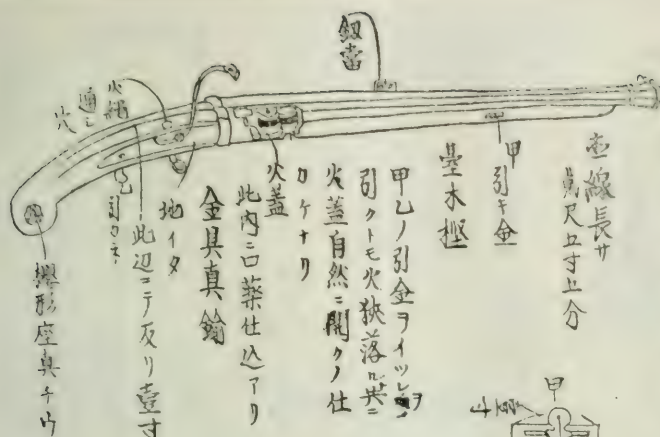 朱線長サ
壹尺五寸五分
甲
引キ金
臺木樫
甲乙ノ引金ヲイツレヲ
引クトモ火狹落ルト共ニ
火蓋自然ニ開クノ仕
カケナリ
火蓋
此内ニ口薬仕込アリ
金具真鍮
地イタ
此辺ニテ反リ壹寸
乙
引カネ
火縄
通シ
穴
櫻形座真チウ
甲